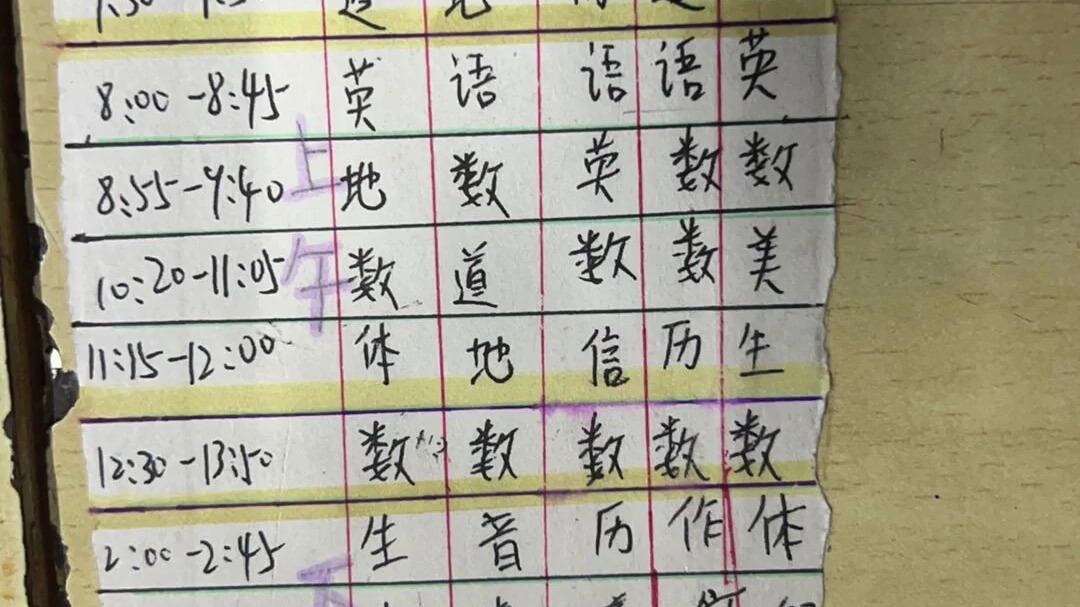 8:00-8:45 英 语 语 语 英
8:55-9:40 上 地 数 英 数 数
10:20-11:05 午 数 道 数 数 美
11:15-12:00 体 地 信 历 生
12:30-13:50 数 数 数 数 数
2:00-2:45 生 音 历 作 体